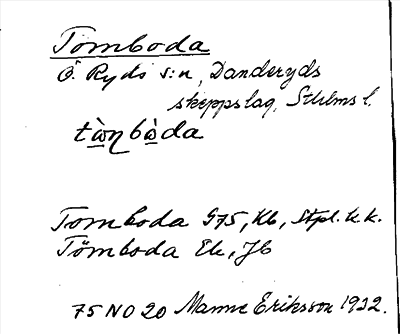 Tomboda
Ö. Ryds s:n, Danderyds
skeppslag, Sthlms l.
Tomboda G75, Kb, Stpl. k.k.
Tömboda Ek, Jb
75 NO 20 Manne Eriksson 1932.